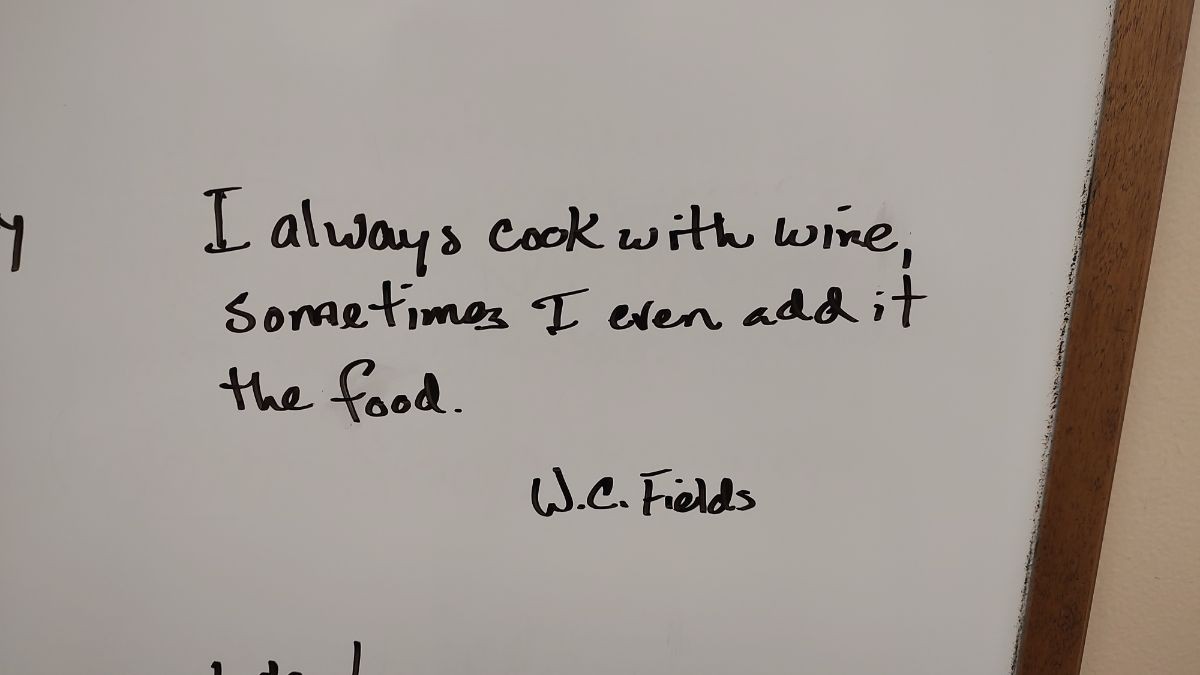 y
I always cook with wine,
sometimes I even add it
the food.
W.C. Fields